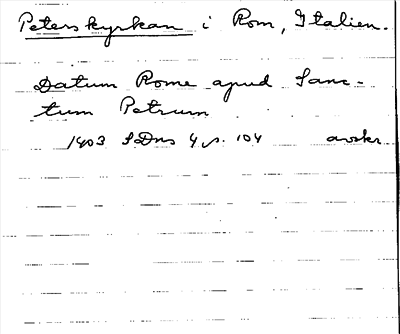 Peterskyrkan i Rom, Italien.
Datum Rome apud Sanc-
tum Petrum
1403 SDns 4 s. 104 avskr